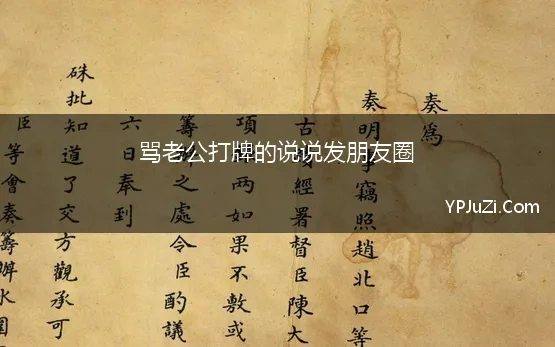 骂老公打牌的说说发朋友圈
YPJuZi.Com
奏為
奏明事竊照趙北口等
古經署督臣陳大
項兩如果不敷或
籌之處令臣酌議
六日奉到
硃批知道了交方觀承可
臣等會奏籌辦水圍